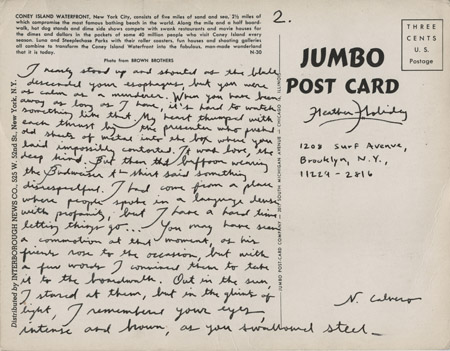 CONEY ISLAND WATERFRONT, New York City, consists of five miles of sand and sea, 2½ miles of
which compromise the most famous bathing beach in the world. Along the mile and a half board-
walk, hot dog stands and dime side shows compete with swank restaurants and movie houses for
the dimes and dollars in the pockets of some 40 million people who visit Coney Island every
season. Luna and Steeplechase Parks with their roller coasters, fun houses and shooting galleries
all combine to transform the Coney Island Waterfront into the fabulous, man-made wonderland
that it is today.
H-30
Photo from BROWN BROTHERS
2.
THREE
CENTS
U.S.
Postage
JUMBO
POST CARD
I nearly stood up and shouted as the blade
descended your esophagus, but you were
as calm as a murderer. When you have been
away as long as I have, it's hard to watch
something like that. My heart thumped with
each thrust by the presenter who pushed
steel sheets of into the box where you
laid impossibly contorted. It was love, the
deep kind. But then the buffoon wearing
the Budweiser t-shirt said something
disrespectful. I had come from a place
where people spoke in a language dense
with profanity, but I have a hard time
letting things go... You may have seen
a commotion at that moment, as his
friends rose to the occasion, but with
a few words I convinced them to take
it to the boardwalk. Out in the sun,
I stared at them, but in the glint of
light, I remembered your eyes,
intense and brown, as you swallowed steel—
Heather Holiday
1208 Surf Avenue,
Brooklyn, N.Y.,
11224-2816
N. Calvero
Distributed by INTERBOROUGH NEWS CO. 525 W. 52nd St., New York, N.Y.
JUMBO POST-CARD COMPANY — SOUTH MICHIGAN AVENUE — CHICAGO ILLINOIS